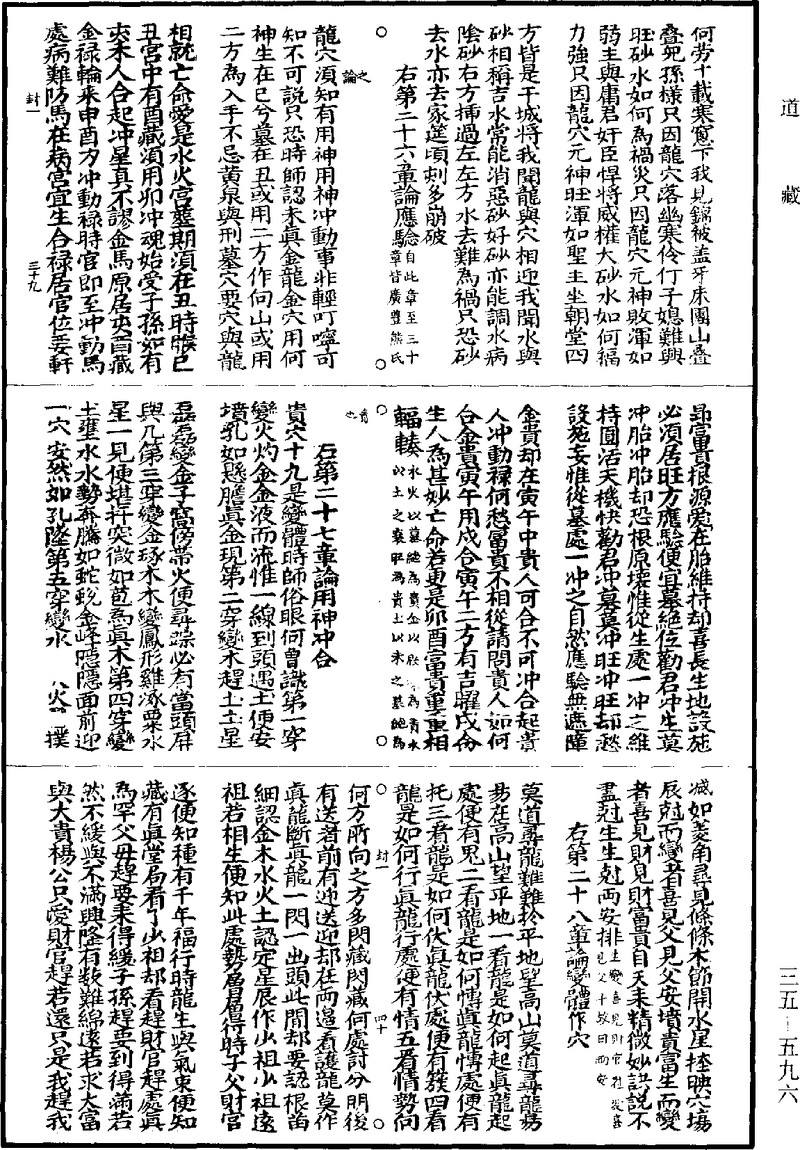 道藏
何劳十載寒窻下我見錦被盖牙床團山叠
叠兒孫樣只因龍穴落幽寒伶仃子媳難興
旺砂水如何為禍災只因龍穴元神敗渾如
弱主與庸君奸臣悍將威權大砂水如何福
力強只因龍穴元神旺渾如聖主坐朝堂四
方皆是干城將我聞龍與穴相迎我聞水與
砂相稱吉水常能消惡砂好砂亦能調水病
陰砂右方揷過左左方水去難為禍只恐砂
去水亦去家筵頃刻多崩破
右第二十六章論應驗自此章至三十章皆廣豐熊氏
之論
龍穴須知有用神用神冲動事非輕叮嚀可
知不可説只恐時師認未真金龍金穴用何
神生在巳兮墓在丑或用二方作向山或用
二方為入手不忌黄泉與刑墓穴要穴與龍
相就亡命愛是水火宫塟期須在丑時候巳
丑宫中有酉藏須用卯冲魂始受子孫如有
夾未人合起冲星真不謬金馬原居夾酉藏
金禄輪来申酉方冲動禄時官即至冲動馬
處病難防馬在病宫宜生合禄居官位妥軒
封一
三十九
昻富貴根源爱在胎維持却喜長生地設施
必須居旺方應驗便宜墓絶位勸君冲生莫
冲胎冲胎却恐根原壊惟從生處一冲之維
持圓活天機快勸君冲墓莫冲旺冲旺却愁
設施妄惟從墓處一冲之自然應驗無遮障
金貴却在寅午中貴人可合不可冲合起貴
人冲動禄何愁富貴不相從請問貴人如何
合金貴寅午用戌合寅午二方有吉曜戌命
生人為甚妙亡命若更是卯酉富貴重重相
輻輳
右第二十七章論用神冲合
貴穴十九是變體時師俗眼何曾識第一穿
變火灼金金液而流惟一線到頭遇土便安
墳乳如懸膽眞金現第二穿變木趕土土星
磊磊變金子窩傍帶火便尋踪必有當頭屏
與几第三穿變金琢木木變鳳形雞涿粟水
星一見便堪扦突微如苞為眞木第四穿變
土壅水水勢奔騰如蛇蛻金峰隠隠面前迎
一穴安然如孔隧第五穿變水
火
撲
滅如菱角尋見條條木節開水星掩映穴塲
辰尅而變者喜見父見父安墳貴富生而變
者喜見財見財富貴自天来精微妙訣説不
盡尅生生尅兩安排
右第二十八章論變體作穴
莫道尋龍難難於平地望高山莫道尋龍易
易在高山望平地一看龍是如何起眞龍起
處便有鬼二看龍是如何慱眞龍慱處便有
托三看龍是如何伏眞龍伏處便有簇四看
龍是如何行眞龍行處便有情五看情勢向
何方所向之方多閃藏閃藏何處討分明後
有送者前有迎送迎却在兩邉看護龍莫作
眞龍斷眞龍一閃一出頭此間却要認根苗
細認金木水火土認定星辰作少祖少祖逺
祖若相生便知此處勢層層得時子父財官
封一
四十
逐便知種有千年福行時龍生與氣束便知
藏有眞堂局看了少祖却看趕財官趕處眞
為罕父母趕要乗得緩子孫趕要到得滿若
然不緩與不滿興隆有数難綿逺若求大富
與大貴楊公只愛財官趕若還只是我趕我
三五—五九六